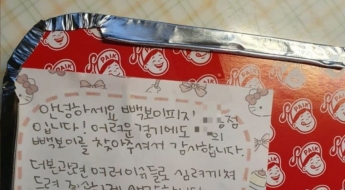 안녕하세요 빽보이피자 점
입니다! 어려운경기에도 의
빽보이를 찾아주셔서 감사합니다.
더본관련 여러이슈들로 심려끼쳐
PAIK
PAIK
PAIK
PAIK